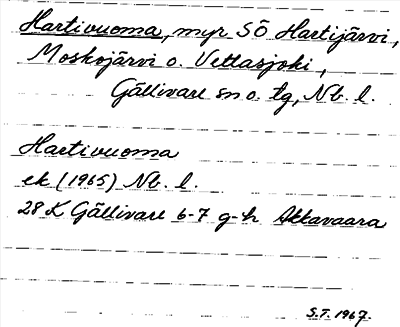 Hartivuoma, myr SÖ Hartijärvi,
Moskojärvi o. Vettasjoki,
Gällivare sn o. tg, Nb. l.
Hartivuoma
ek (1965) Nb. l.
28 K Gällivare 6-7 g-h Akkavaara
S.T. 1967.